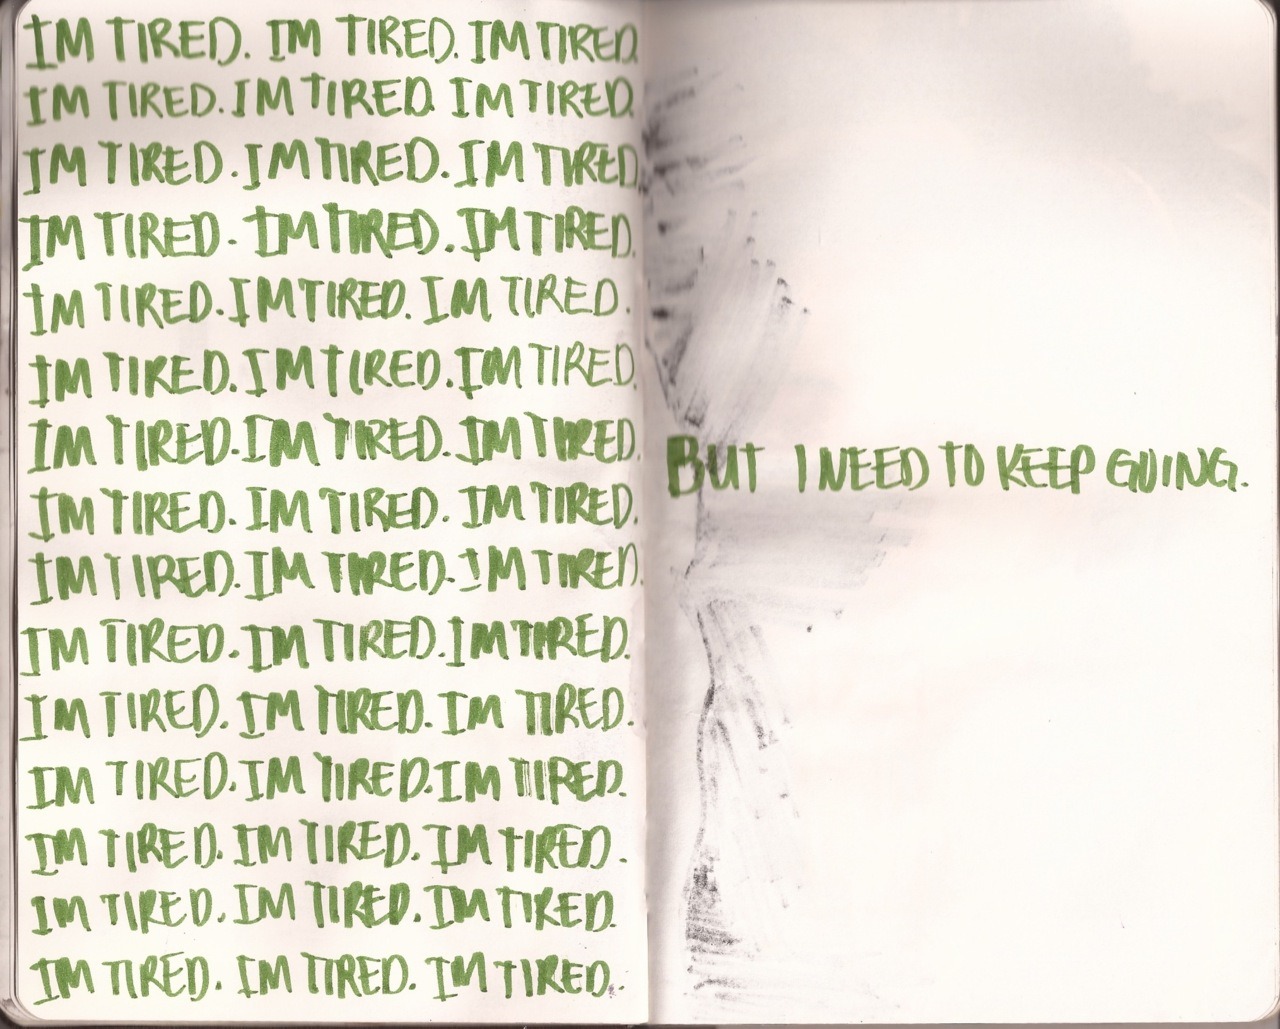 IM TIRED. IM TIRED. IM TIRED.
IM TIRED. IM TIRED. IM TIRED.
IM TIRED. IM TIRED. IM TIRED.
IM TIRED. IM TIRED. IM TIRED.
IM TIRED. IM TIRED. IM TIRED.
IM TIRED. IM TIRED. IM TIRED.
IM TIRED. IM TIRED. IM TIRED.
IM TIRED. IM TIRED. IM TIRED.
IM TIRED. IM TIRED. IM TIRED.
IM TIRED. IM TIRED. IM TIRED.
IM TIRED. IM TIRED. IM TIRED.
IM TIRED. IM TIRED. IM TIRED.
IM TIRED. IM TIRED. IM TIRED.
IM TIRED. IM TIRED. IM TIRED.
IM TIRED. IM TIRED. IM TIRED.
BUT I NEED TO KEEP GOING.